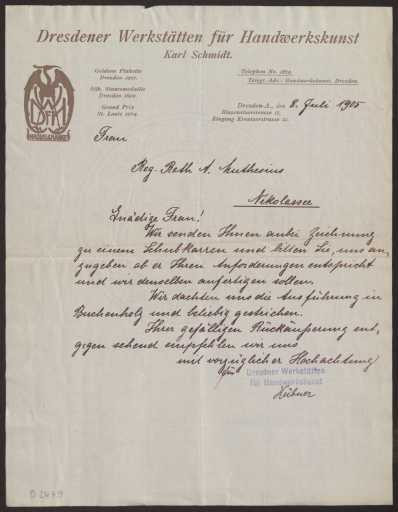 Dresdener Werkstätten für Handwerkskunst
Karl Schmidt.
Goldene Plakette
Dresden 1901.
Silb. Staatsmedaille
Dresden
Grand Prix
St. Louis 1904.
Telephon No.
Telegr.-Adr.: Handwerkskunst, Dresden.
Dresden-A., den 8. Juli 1905
Blasewitzerstrasse 17,
Eingang Kreutzerstrasse
DWfHK
Frau
Reg. Rath A. Muthesius
Nikolassee
Gnädige Frau!
Wir senden Ihnen anbei Zeichnung
zu einem Schubkarren und bitten Sie, uns an,
zugeben ob er Ihren Anforderungen entspricht
und wir denselben anfertigen sollen.
Wir dachten uns die Ausführung in
Buchenholz und beliebig gestrichen.
Ihrer gefälligen Rückäußerung ent,
gegen sehend empfehlen wir uns
mit vorzüglicher Hochachtung
für Dresdner Werkstätten
für Handwerkskunst
Hübner
D 2479